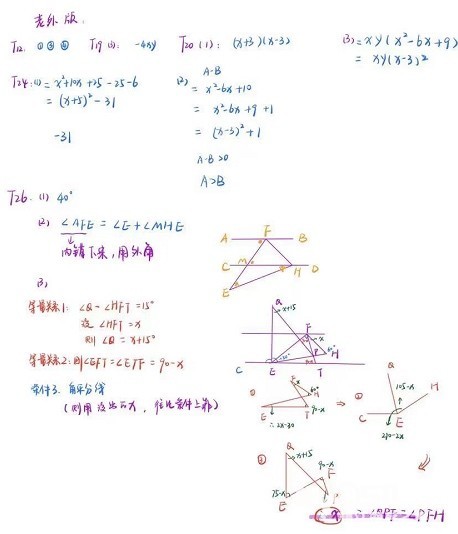 老外版:
T12. ①③④ T19(1): -4xy T20(1): (x+3)(x-3) (3) = xy(x²-6x+9)
= xy(x-3)²
T24:(1) = x²+10x+25-25-6
= (x+5)²-31
-31
(2) A-B
= x²-6x+10
= x²-6x+9+1
= (x-3)²+1
A-B>0
A>B
T26. (1) 40°
(2) ∠AFE = ∠E+∠MHE
内错下来,用外角
A F B
C M H D
E
3)
等量关系1: ∠Q-∠HFT=15°
设∠HFT=x
则∠Q=x+15°
等量关系2: 则∠EFT=∠ETF=90-x
条件3. 角平分线
(则用设出的x, 往此条件上靠)
Q
x+15
F
x
60°
P H
C E T
①
x
60°
H
E T 90-x
∴ 2x-30
⇒ ②
Q
105-x
H
C E
210-2x
③
Q
x+15
90-x
F
75-x
E P
x ∴∠PF=∠PFH